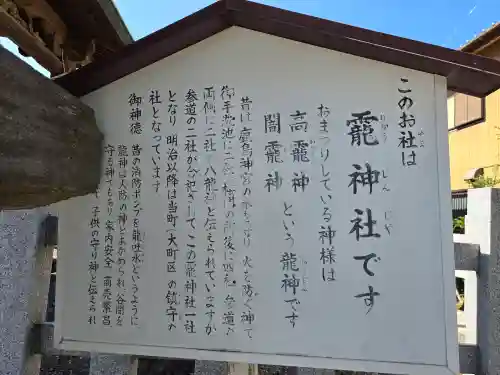 このお社は
龗神社です
おまつりしている神様は
高龗神
闇龗神
という龍神です
昔は鹿島神宮の
火を防ぐ神で
御手洗池に二社
両側に二社で八龍神と伝えられていますが
参道の二社が合祀されてこの龗神社一社
となり明治以降は当町(大町区)の鎮守の
社となっています
御神徳
昔の消防ポンプを龍吐水というように
龍神は火防の神とあがめられ谷間を
守る神でもあり家内安全 商売繁昌
子供の守り神と伝えられ